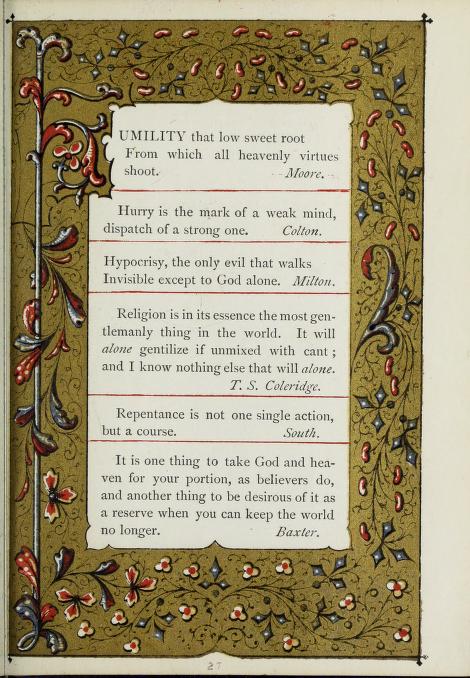 UMILITY that low sweet root
From which all heavenly virtues
shoot. Moore.
Hurry is the mark of a weak mind,
dispatch of a strong one. Colton.
Hypocrisy, the only evil that walks
Invisible except to God alone. Milton.
Religion is in its essence the most gen-
tlemanly thing in the world. It will
alone gentilize if unmixed with cant ;
and I know nothing else that will alone.
T. S. Coleridge.
Repentance is not one single action,
but a course. South.
It is one thing to take God and hea-
ven for your portion, as believers do,
and another thing to be desirous of it as
a reserve when you can keep the world
no longer. Baxter.